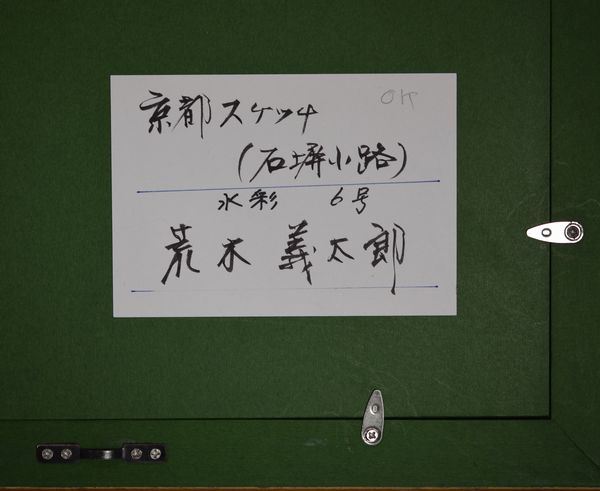 京都スケッチ
OK
(石塀小路)
水彩 6号
荒木 義太郎